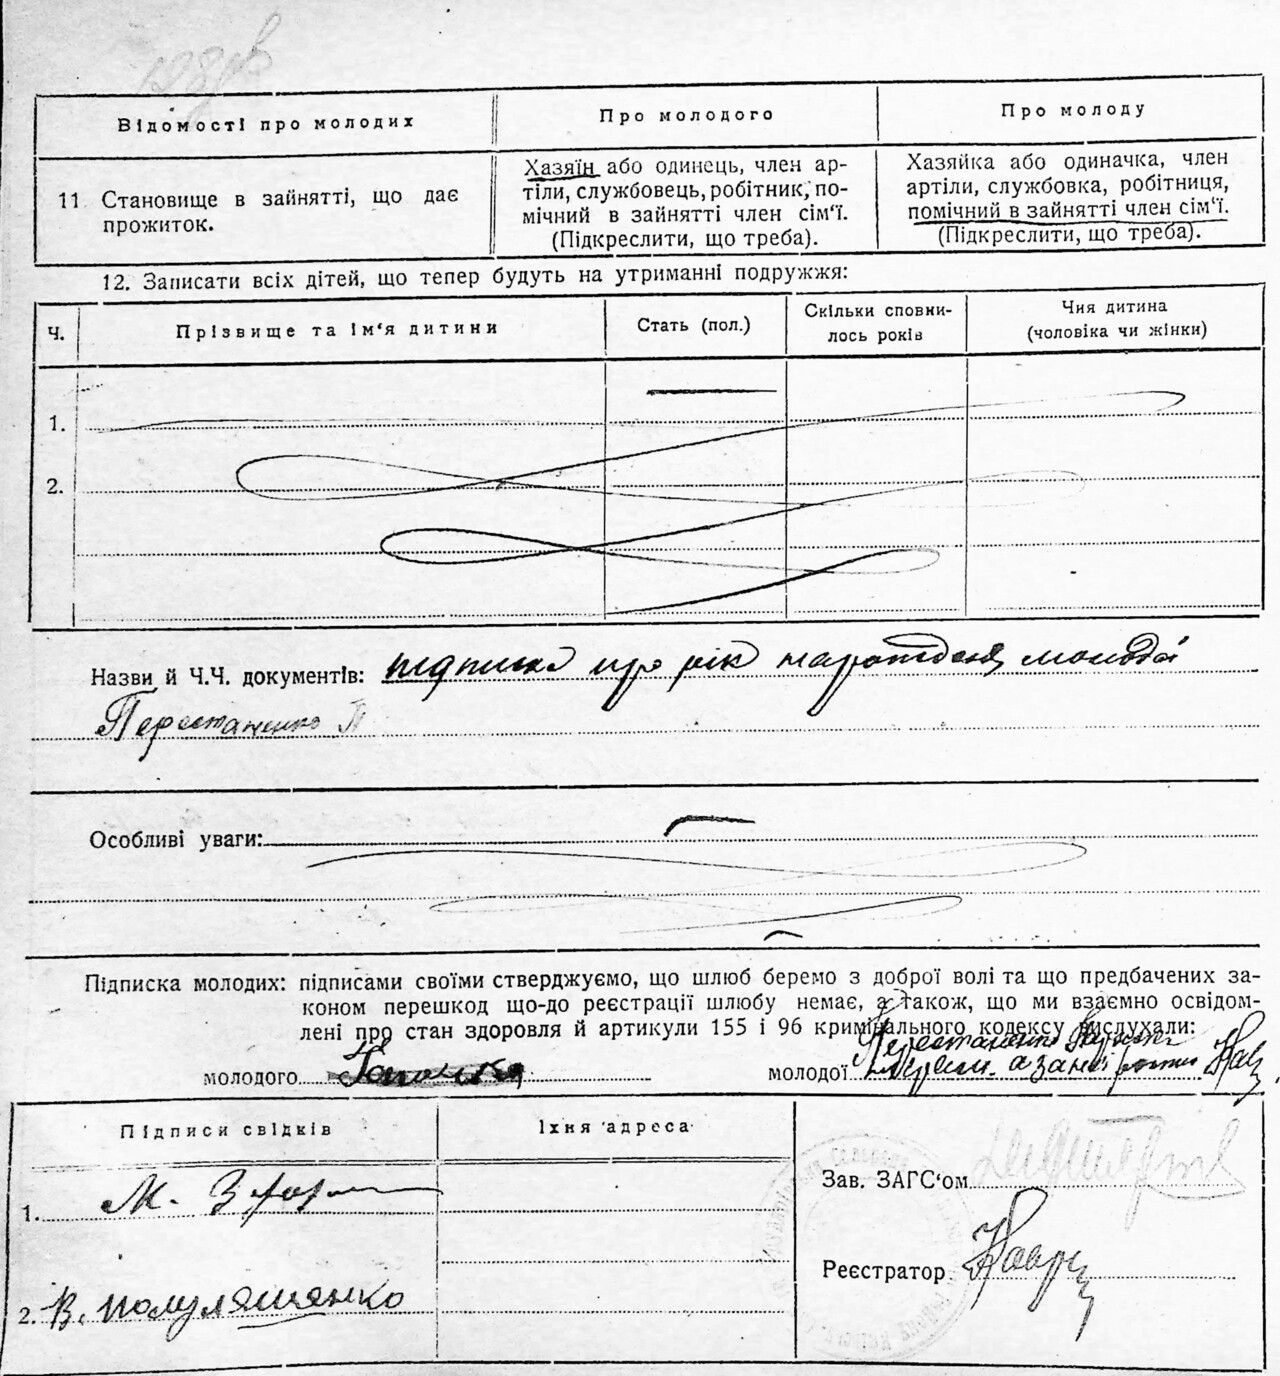 Відомості про молодих
Про молодого
Про молоду
11 Становище в зайнятті, що дає
прожиток.
Хазяїн або одинець, член ар-
тіли, службовець, робітник, по-
мічний в зайнятті член сім'ї.
(Підкреслити, що треба).
Хазяйка або одиначка, член
артіли, службовка, робітниця,
помічний в зайнятті член сім'ї.
(Підкреслити, що треба).
12. Записати всіх дітей, що тепер будуть на утриманні подружжя:
Ч.
Прізвище та ім'я дитини
Стать (пол.)
Скільки сповни-
лось років
Чия дитина
(чоловіка чи жінки)
1.
2.
Назви й Ч.Ч. документів: підписка про рік народження молодої
Перестаненко П
Особливі уваги:
Підписка молодих: підписами своїми стверджуємо, що шлюб беремо з доброї волі та що предбачених за-
коном перешкод що-до реєстрації шлюбу немає, а також, що ми взаємно освідом-
лені про стан здоровля й артикули 155 і 96 кримінального кодексу вислухали:
молодого
молодої Перестаненко
Підписи свідків
Їхня адреса
1. М.
2. В. Полуляшенко
Зав. ЗАГС'ом
Реєстратор